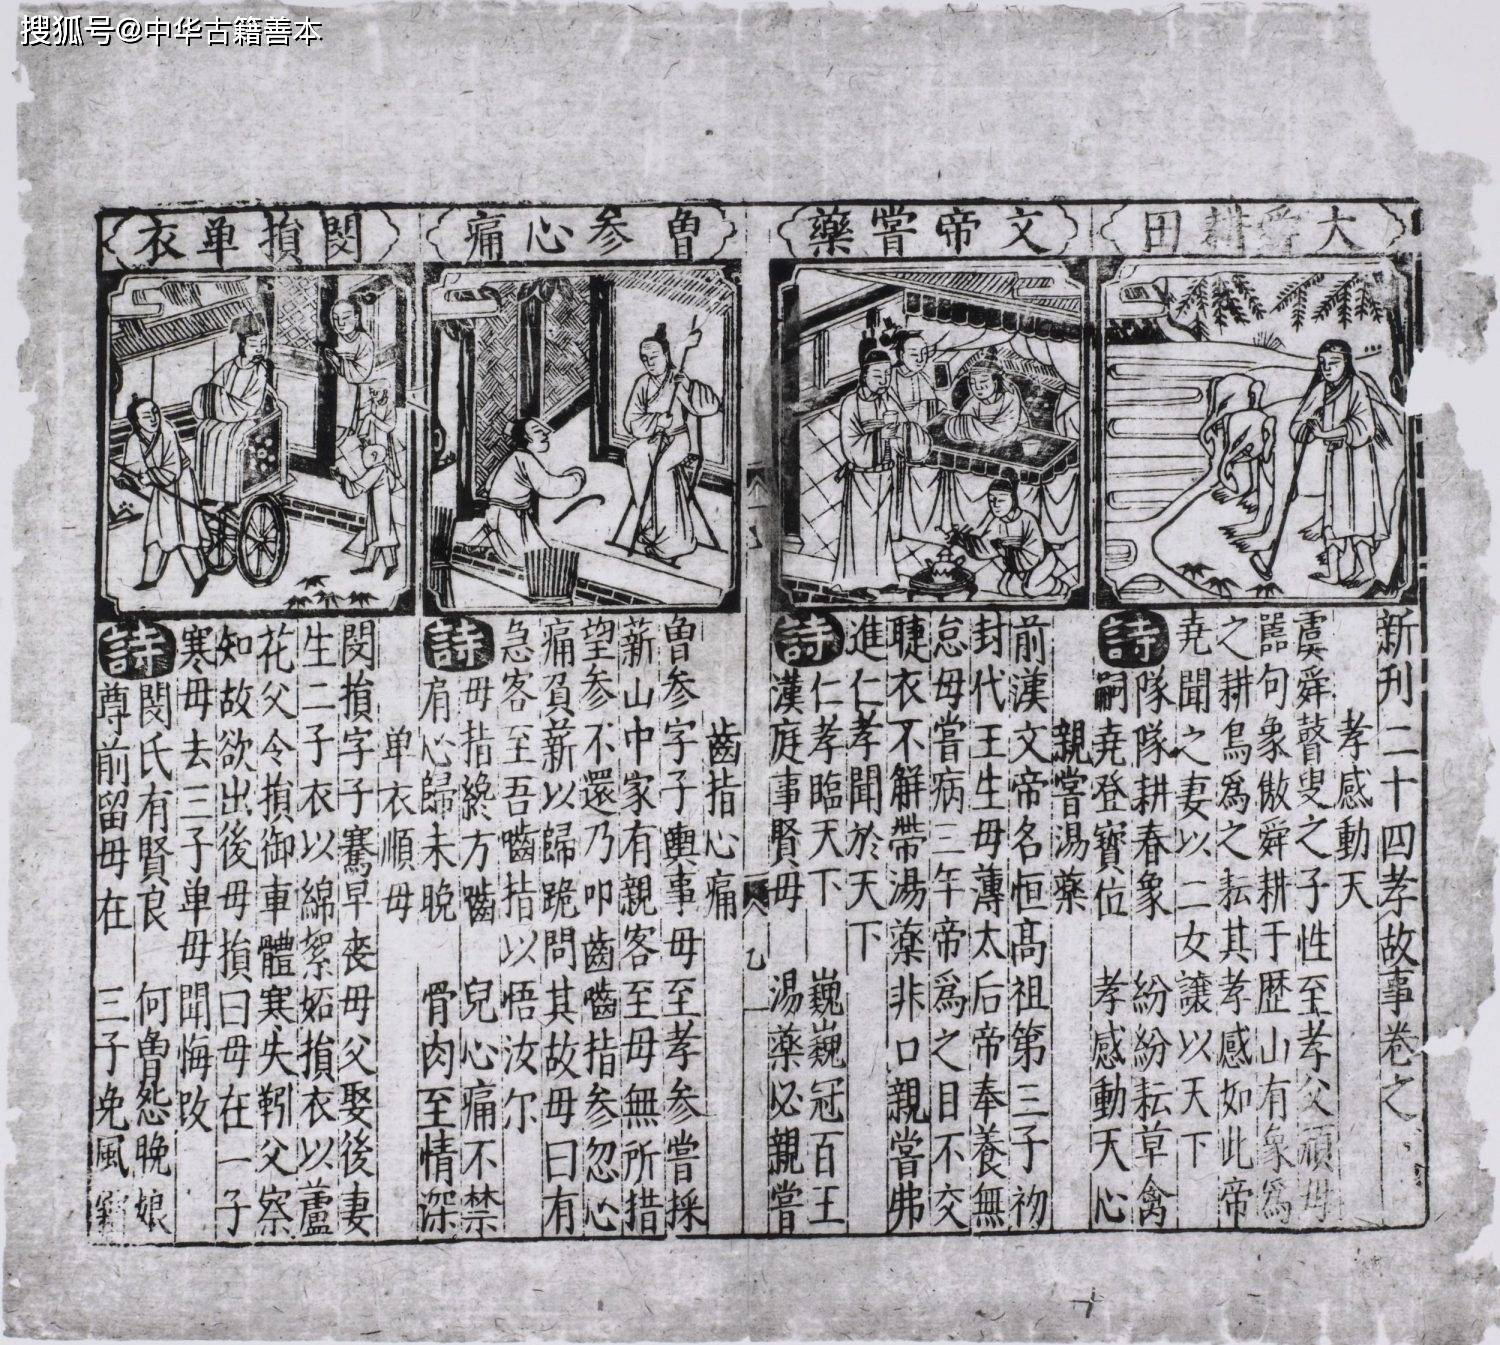 搜狐号@中华古籍善本
大舜耕田
文帝嘗藥
曾參心痛
閔損单衣
新刊二十四孝故事卷之
孝感動天
虞舜瞽叟之子性至孝父頑母
嚚句象傲舜耕于歷山有象爲
之耕鳥爲之耘其孝感如此帝
堯聞之妻以二女讓以天下
詩
隊隊耕春象 紛紛耘草禽
嗣堯登寶位 孝感動天心
親嘗湯藥
前漢文帝名恒高祖第三子初
封代王生母薄太后帝奉養無
怠母嘗病三年帝爲之目不交
睫衣不解帶湯藥非口親嘗弗
進仁孝聞於天下
詩
仁孝臨天下 巍巍冠百王
漢庭事賢母 湯藥必親嘗
齒指心痛
曾參字子輿事母至孝參嘗採
薪山中家有親客至母無所措
望參不還乃叩齒嚙指參忽心
痛負薪以歸跪問其故母曰有
急客至吾嚙指以悟汝尔
詩
母指終方嚙 兒心痛不禁
肩心歸未晚 骨肉至情深
单衣順母
閔損字子騫早丧母父娶後妻
生二子衣以綿絮妬損衣以蘆
花父令損御車體寒失靷父察
知故欲出後母損曰母在一子
寒母去三子单母聞悔改
詩
閔氏有賢良 何曾怨晚娘
尊前留母在 三子免風